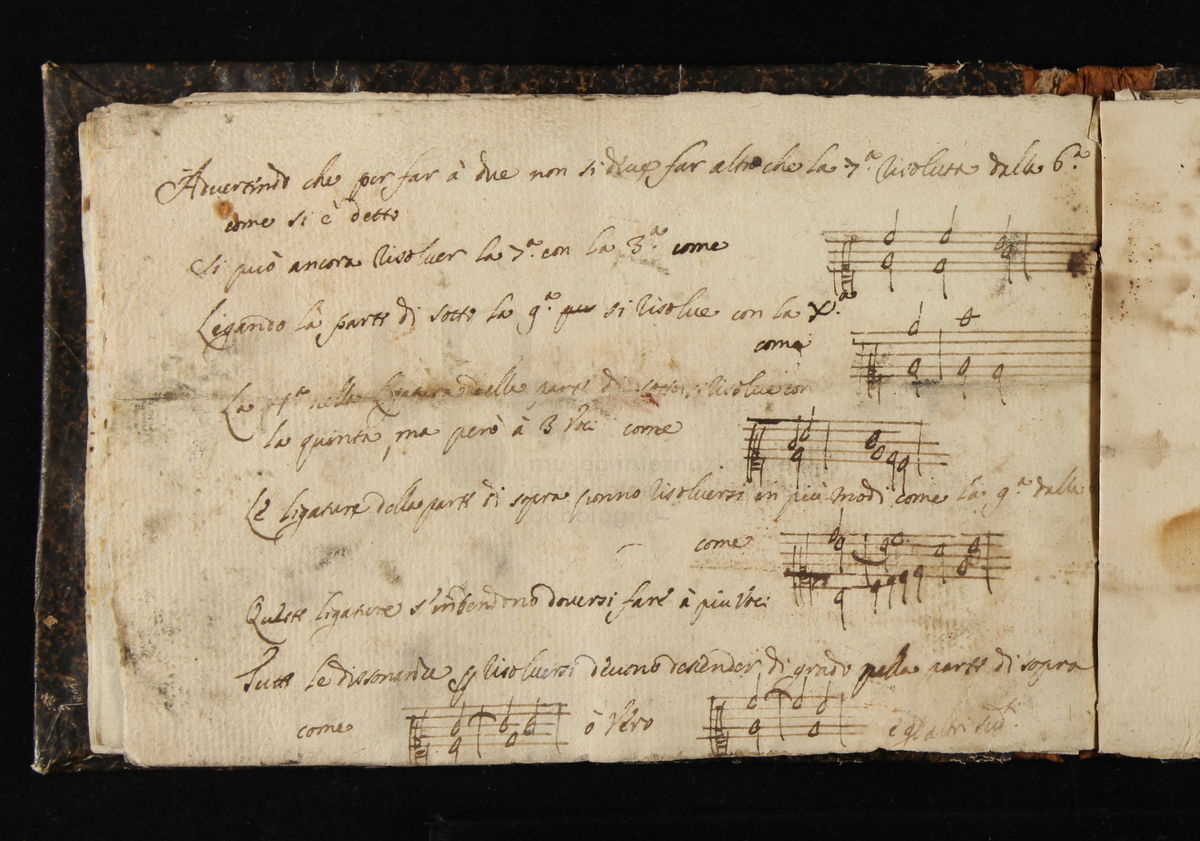 Advertindo che per far à due non si deve far altro che la 7.ª risoluta dalla 6.ª
come si è detto
Si può ancora risolver la 7.ª con la 3.ª come
Legando la parte di sotto la 9.ª si risolve con la X.ª
come
La 4.ª nella ligatura della parte di sotto si risolve con
la quinta, ma però à 3 voci come
Le ligature della parte di sopra ponno risolversi in più modi come la 9.ª dalla
come
museo internazionale
di bologna
Queste ligature s'intendono doversi fare à più voci
Tutte le dissonanze p risolversi devono descender di grado nella parte di sopra
come ò vero e gl'altri